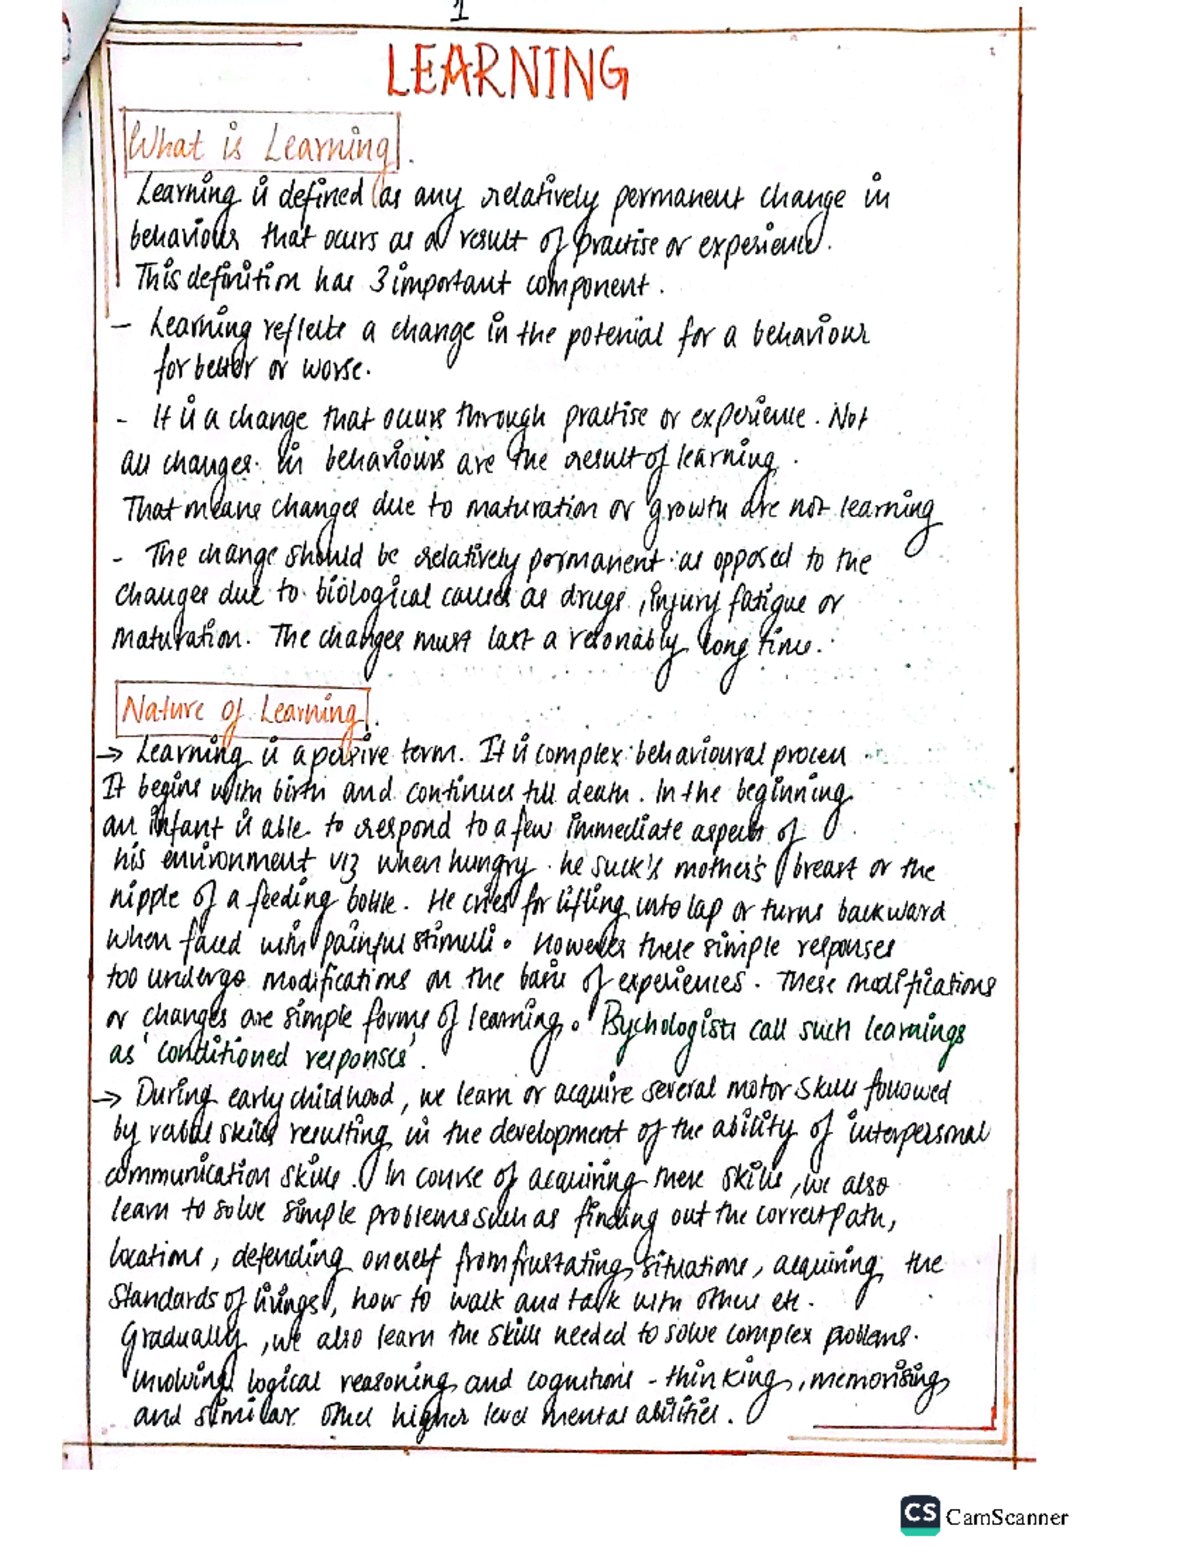 1
LEARNING
What is Learning.
Learning is defined as any relatively permanent change in
behaviour that ocurs as a result of practise or experience.
This definition has 3 important component.
- Learning reflects a change in the potenial for a behaviour
for better or worse.
- It is a change that occurs through practise or experience. Not
all changes in behaviours are the result of learning.
That means changes due to maturation or growth are not learning
- The change should be relatively permanent as opposed to the
changes due to biological causes as drugs, injury fatigue or
maturation. The changes must last a resonably long time.
Nature of Learning.
→ Learning is a passive term. It is complex behavioural process
It begins with birth and continues till death. In the beginning
an infant is able to respond to a few immediate aspects of
his environment viz when hungry he suck's mother's breast or the
nipple of a feeding bottle. He cries for lifting into lap or turns backward
when faced with painful stimuli. However these simple responses
too undergo modifications on the basis of experiences. These modifications
or changes are simple forms of learning. Psychologists call such learnings
as 'conditioned responses'.
→ During early childhood, we learn or acquire several motor skills followed
by verbal skills resulting in the development of the ability of interpersonal
communication skills. In course of acquiring these skills, we also
learn to solve simple problems such as finding out the correct path,
locations, defending oneself from frustating situations, acquiring the
standards of livings, how to walk and talk with others etc.
Gradually, we also learn the skills needed to solve complex problems.
involving logical reasoning and cognitions - thinking, memorising
and similar other higher level mental abilities.
CS CamScanner